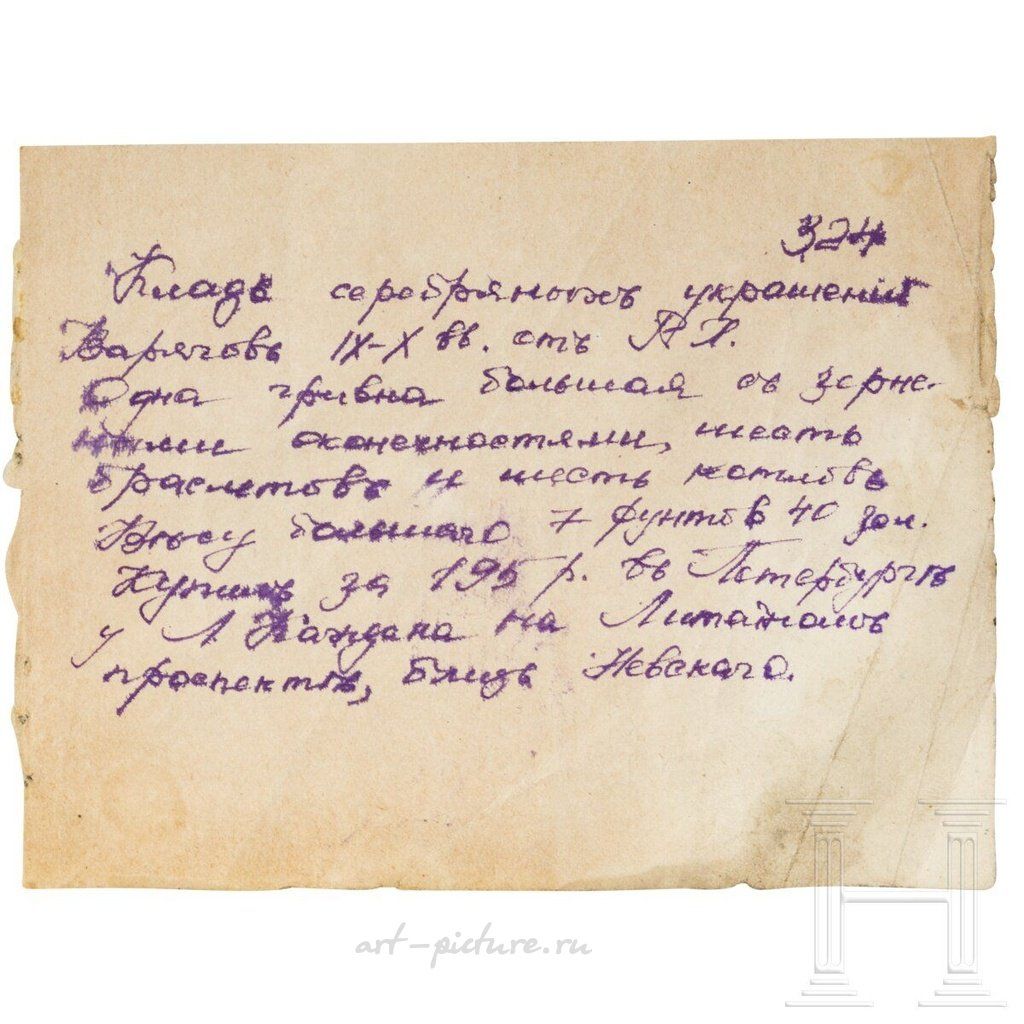 324
Кладъ серебряныхъ украшений
Варяговъ IX-X вв. отъ Р. Х.
Одна гривна большая съ зерне-
ными оконечностями, шесть
браслетовъ и шесть
Вѣсу большаго 7 фунтов 40 зол.
Купилъ за 195 р. въ Петербургѣ
у Л Каждана на Литейномъ
проспектѣ, близъ Невскаго.
art-picture.ru